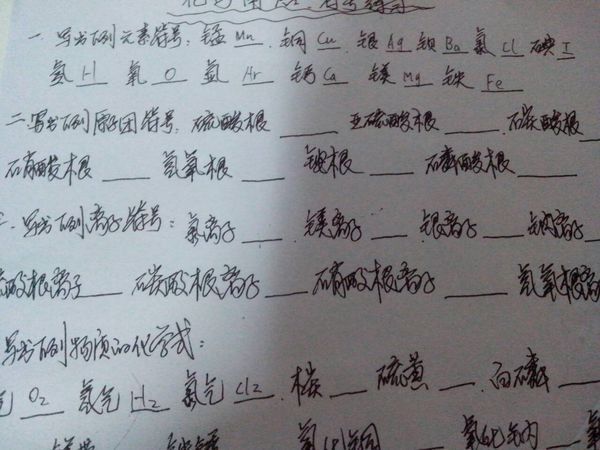 一、写出下列元素符号：锰 Mn 铜 Cu 银 Ag 钡 Ba 氯 Cl 碘 I
氢 H 氧 O 氩 Ar 钙 Ca 镁 Mg 铁 Fe
二、写出下列原子团符号：硫酸根 ____ 亚硫酸根 ____ 碳酸根
硝酸根 ____ 氢氧根 ____ 铵根 ____ 磷酸根 ____
写出下列离子符号：氯离子 ____ 镁离子 ____ 银离子 ____ 钠离子
酸根离子 ____ 碳酸根离子 ____ 硝酸根离子 ____ 氢氧根离子
写出下列物质的化学式：
O2 氢气 H2 氯气 Cl2 木炭 ____ 硫黄 ____ 白磷 ____